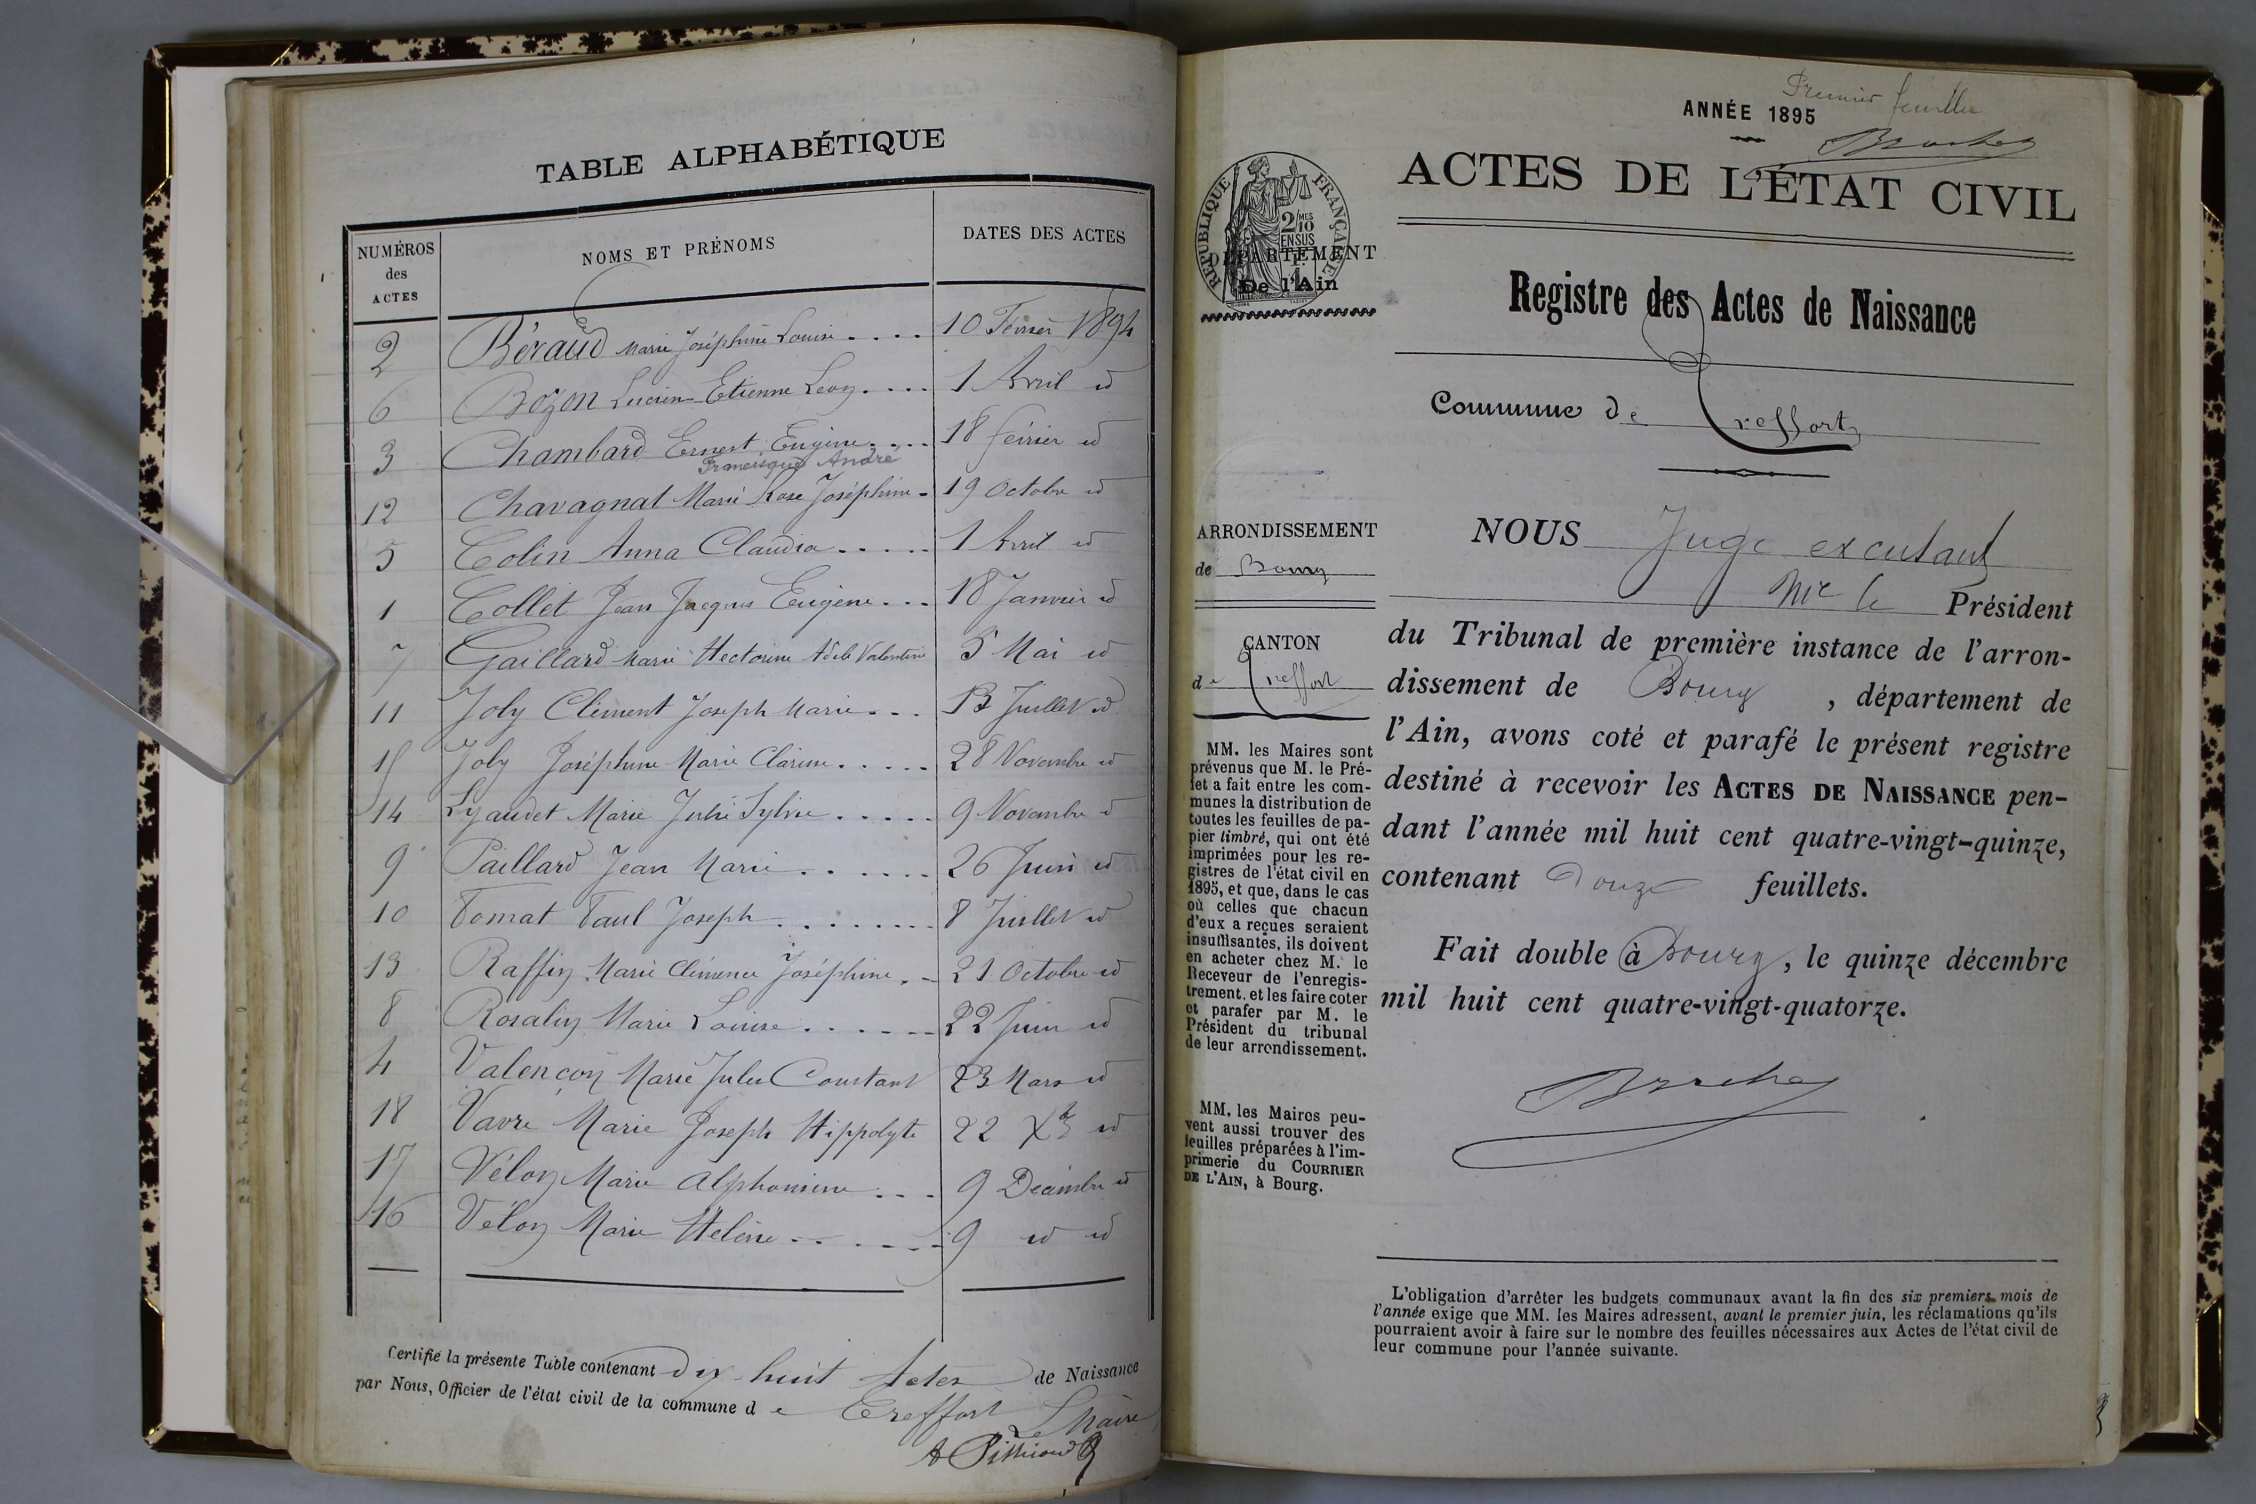 TABLE ALPHABÉTIQUE
NUMÉROS des ACTES
NOMS ET PRÉNOMS
DATES DES ACTES
2 Béraud Marie Joséphine Louise .... 10 Février 1894
6 Bozon Lucien Etienne Leon .... 1 Avril id
3 Chambard Ernest Eugène .... 18 février id
André
12 Chavagnat Marie Rose Joséphine - 19 Octobre id
5 Colin Anna Claudia ..... 1 Avril id
1 Collet Jean Jacques Eugène ... 18 Janvier id
7 Gaillard Marie Hectorine Adèle Valentine 5 Mai id
11 Joly Clément Joseph Marie ... 13 Juillet id
15 Joly Joséphine Marie Clarisse ..... 28 Novembre id
14 Lyaudet Marie Julie Sylvie ..... 9 Novembre id
9 Paillard Jean Marie ...... 26 Juin id
10 Pomat Paul Joseph ........ 8 Juillet id
13 Raffin Marie Clémence Joséphine .. 21 Octobre id
8 Rosalin Marie Louise ...... 22 Juin id
4 Valençon Marie Jules Constant 23 Mars id
18 Vavre Marie Joseph Hippolyte 22 Xbre id
17 Véloy Marie Alphonsine ... 9 Décembre id
16 Véloy Marie Helène ...... 9 id id
Certifié la présente Table contenant dix huit Actes de Naissance
par Nous, Officier de l'état civil de la commune de Treffort
Le Maire
Premier feuillet
ANNÉE 1895
ACTES DE L'ÉTAT CIVIL
RÉPUBLIQUE FRANÇAISE
2/10MES
EN SUS
DÉPARTEMENT
De l'Ain
Registre des Actes de Naissance
Commune de Treffort
ARRONDISSEMENT
de Bourg
CANTON
de Treffort
MM. les Maires sont
prévenus que M. le Pré-
fet a fait entre les com-
munes la distribution de
toutes les feuilles de pa-
pier timbré, qui ont été
imprimées pour les re-
gistres de l'état civil en
1895, et que, dans le cas
où celles que chacun
d'eux a reçues seraient
insuffisantes, ils doivent
en acheter chez M. le
Receveur de l'enregis-
trement, et les faire coter
et parafer par M. le
Président du tribunal
de leur arrondissement.
MM. les Maires peu-
vent aussi trouver des
feuilles préparées à l'im-
primerie du COURRIER
DE L'AIN, à Bourg.
NOUS Juge excusant
Mr le Président
du Tribunal de première instance de l'arron-
dissement de Bourg, département de
l'Ain, avons coté et parafé le présent registre
destiné à recevoir les ACTES DE NAISSANCE pen-
dant l'année mil huit cent quatre-vingt-quinze,
contenant Douze feuillets.
Fait double à Bourg, le quinze décembre
mil huit cent quatre-vingt-quatorze.
L'obligation d'arrêter les budgets communaux avant la fin des six premiers mois de
l'année exige que MM. les Maires adressent, avant le premier juin, les réclamations qu'ils
pourraient avoir à faire sur le nombre des feuilles nécessaires aux Actes de l'état civil de
leur commune pour l'année suivante.